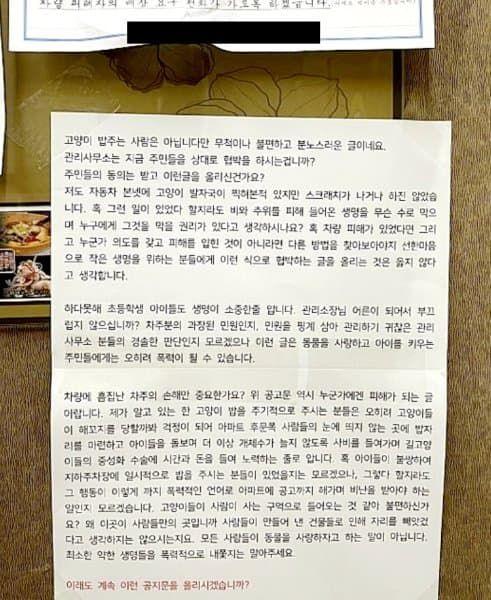 차량 피해자의 예상 요구 전화가 가도록 하겠습니다.
고양이 밥주는 사람은 아닙니다만 무척이나 불편하고 분노스러운 글이네요.
관리사무소는 지금 주민들을 상대로 협박을 하시는겁니까?
주민들의 동의는 받고 이런글을 올리신건가요?
저도 자동차 본넷에 고양이 발자국이 찍혀본적 있지만 스크래치가 나거나 하진 않았습
니다. 혹 그런 일이 있었다 할지라도 비와 추위를 피해 들어온 생명을 무슨 수로 막으
며 누구에게 그것을 막을 권리가 있다고 생각하시나요? 혹 차량 피해가 있었다면 그리
고 누군가 의도를 갖고 피해를 입힌 것이 아니라면 다른 방법을 찾아보아야지 선한마음
으로 작은 생명을 위하는 분들에게 이런 식으로 협박하는 글을 올리는 것은 옳지 않다
고 생각합니다.
하다못해 초등학생 아이들도 생명이 소중한줄 압니다. 관리소장님 어른이 되어서 부끄
럽지 않으십니까? 차주분의 과장된 민원인지, 민원을 핑계 삼아 관리하기 귀찮은 관리
사무소 분들의 경솔한 판단인지 모르겠으나 이런 글은 동물을 사랑하고 아이를 키우는
주민들에게는 오히려 폭력이 될 수 있습니다.
차량에 흠집난 차주의 손해만 중요한가요? 위 공고문 역시 누군가에겐 피해가 되는 글
이랍니다. 제가 알고 있는 한 고양이 밥을 주기적으로 주시는 분들은 오히려 고양이들
이 해꼬지를 당할까봐 걱정이 되어 아파트 후문쪽 사람들의 눈에 띄지 않는 곳에 밥자
리를 마련하고 아이들을 돌보며 더 이상 개체수가 늘지 않도록 사비를 들여가며 길고양
이들의 중성화 수술에 시간과 돈을 들여 노력하는 줄로 압니다. 혹 아이들이 불쌍하여
지하주차장에 일시적으로 밥을 주시는 분들이 있었을지는 모르겠으나, 그렇다 할지라도
그 행동이 이렇게 까지 폭력적인 언어로 아파트에 공고까지 해가며 비난을 받아야 하는
일인지 모르겠습니다. 고양이들이 사람이 사는 구역으로 들어오는 것이 같아 불편하신가
요? 왜 이곳이 사람들만의 곳입니까 사람들이 만들어 낸 건물들로 인해 자리를 빼앗겼
다고 생각하지는 않으시는지요. 모든 사람들이 동물을 사랑하자고 하는 말이 아닙니다.
최소한 약한 생명들을 폭력적으로 내쫓지는 말아주세요.
이래도 계속 이런 공지문을 올리시겠습니까?